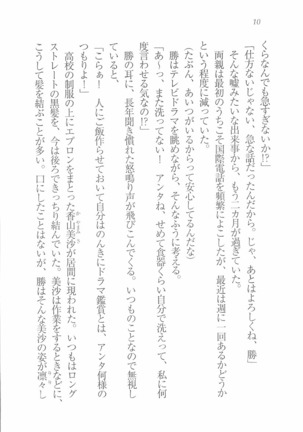 10
くらなんでも急すぎないか!?」
「仕方ないじゃない、急な話だったんだから。じゃ、あとはよろしくね、勝」
そんな嘘みたいな出来事から、もう二カ月が過ぎていた。
両親は最初のうちこそ国際電話を頻繁によこしたが、最近は週に一回あるかどうか
という程度に減っていた。
（たぶん、あいつがいるからって安心してるんだな）
勝はテレビドラマを眺めながら、そんなふうに考える。
「あ～っ、また洗ってない！　アンタね、せめて食器くらい自分で洗えって、私に何
度言わせる気なの!?」
勝の耳に、長年聞き慣れた怒鳴り声が飛びこんでくる。いつものことなので無視し
ていると、
「こらぁ！　人にご飯作らせておいて自分はのんきにドラマ鑑賞とは、アンタ何様の
つもりよ！」
高校の制服の上にエプロンをまとった香山美沙が居間に現われた。いつもはロング
ストレートの黒髪を、今は後ろできっちり結んでいた。美沙は作業をするときなどに、
こうして髪を結ぶことが多い。口にしたことはないが、勝はそんな美沙の姿が凛々し